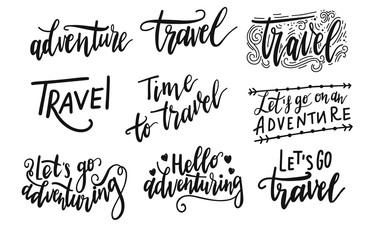 adventure
travel
travel
TRAVEl
Time
to travel
Let's go on an
ADVENTURE
Let's go
adventuring
Hello
adventuring
LET'S GO
travel